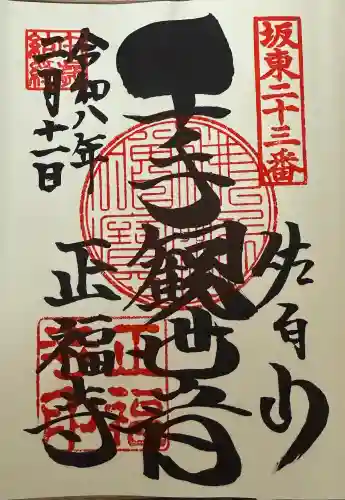 坂東二十三番
佐白山
千手観世音
正福寺
令和八年
二月十一日
正福